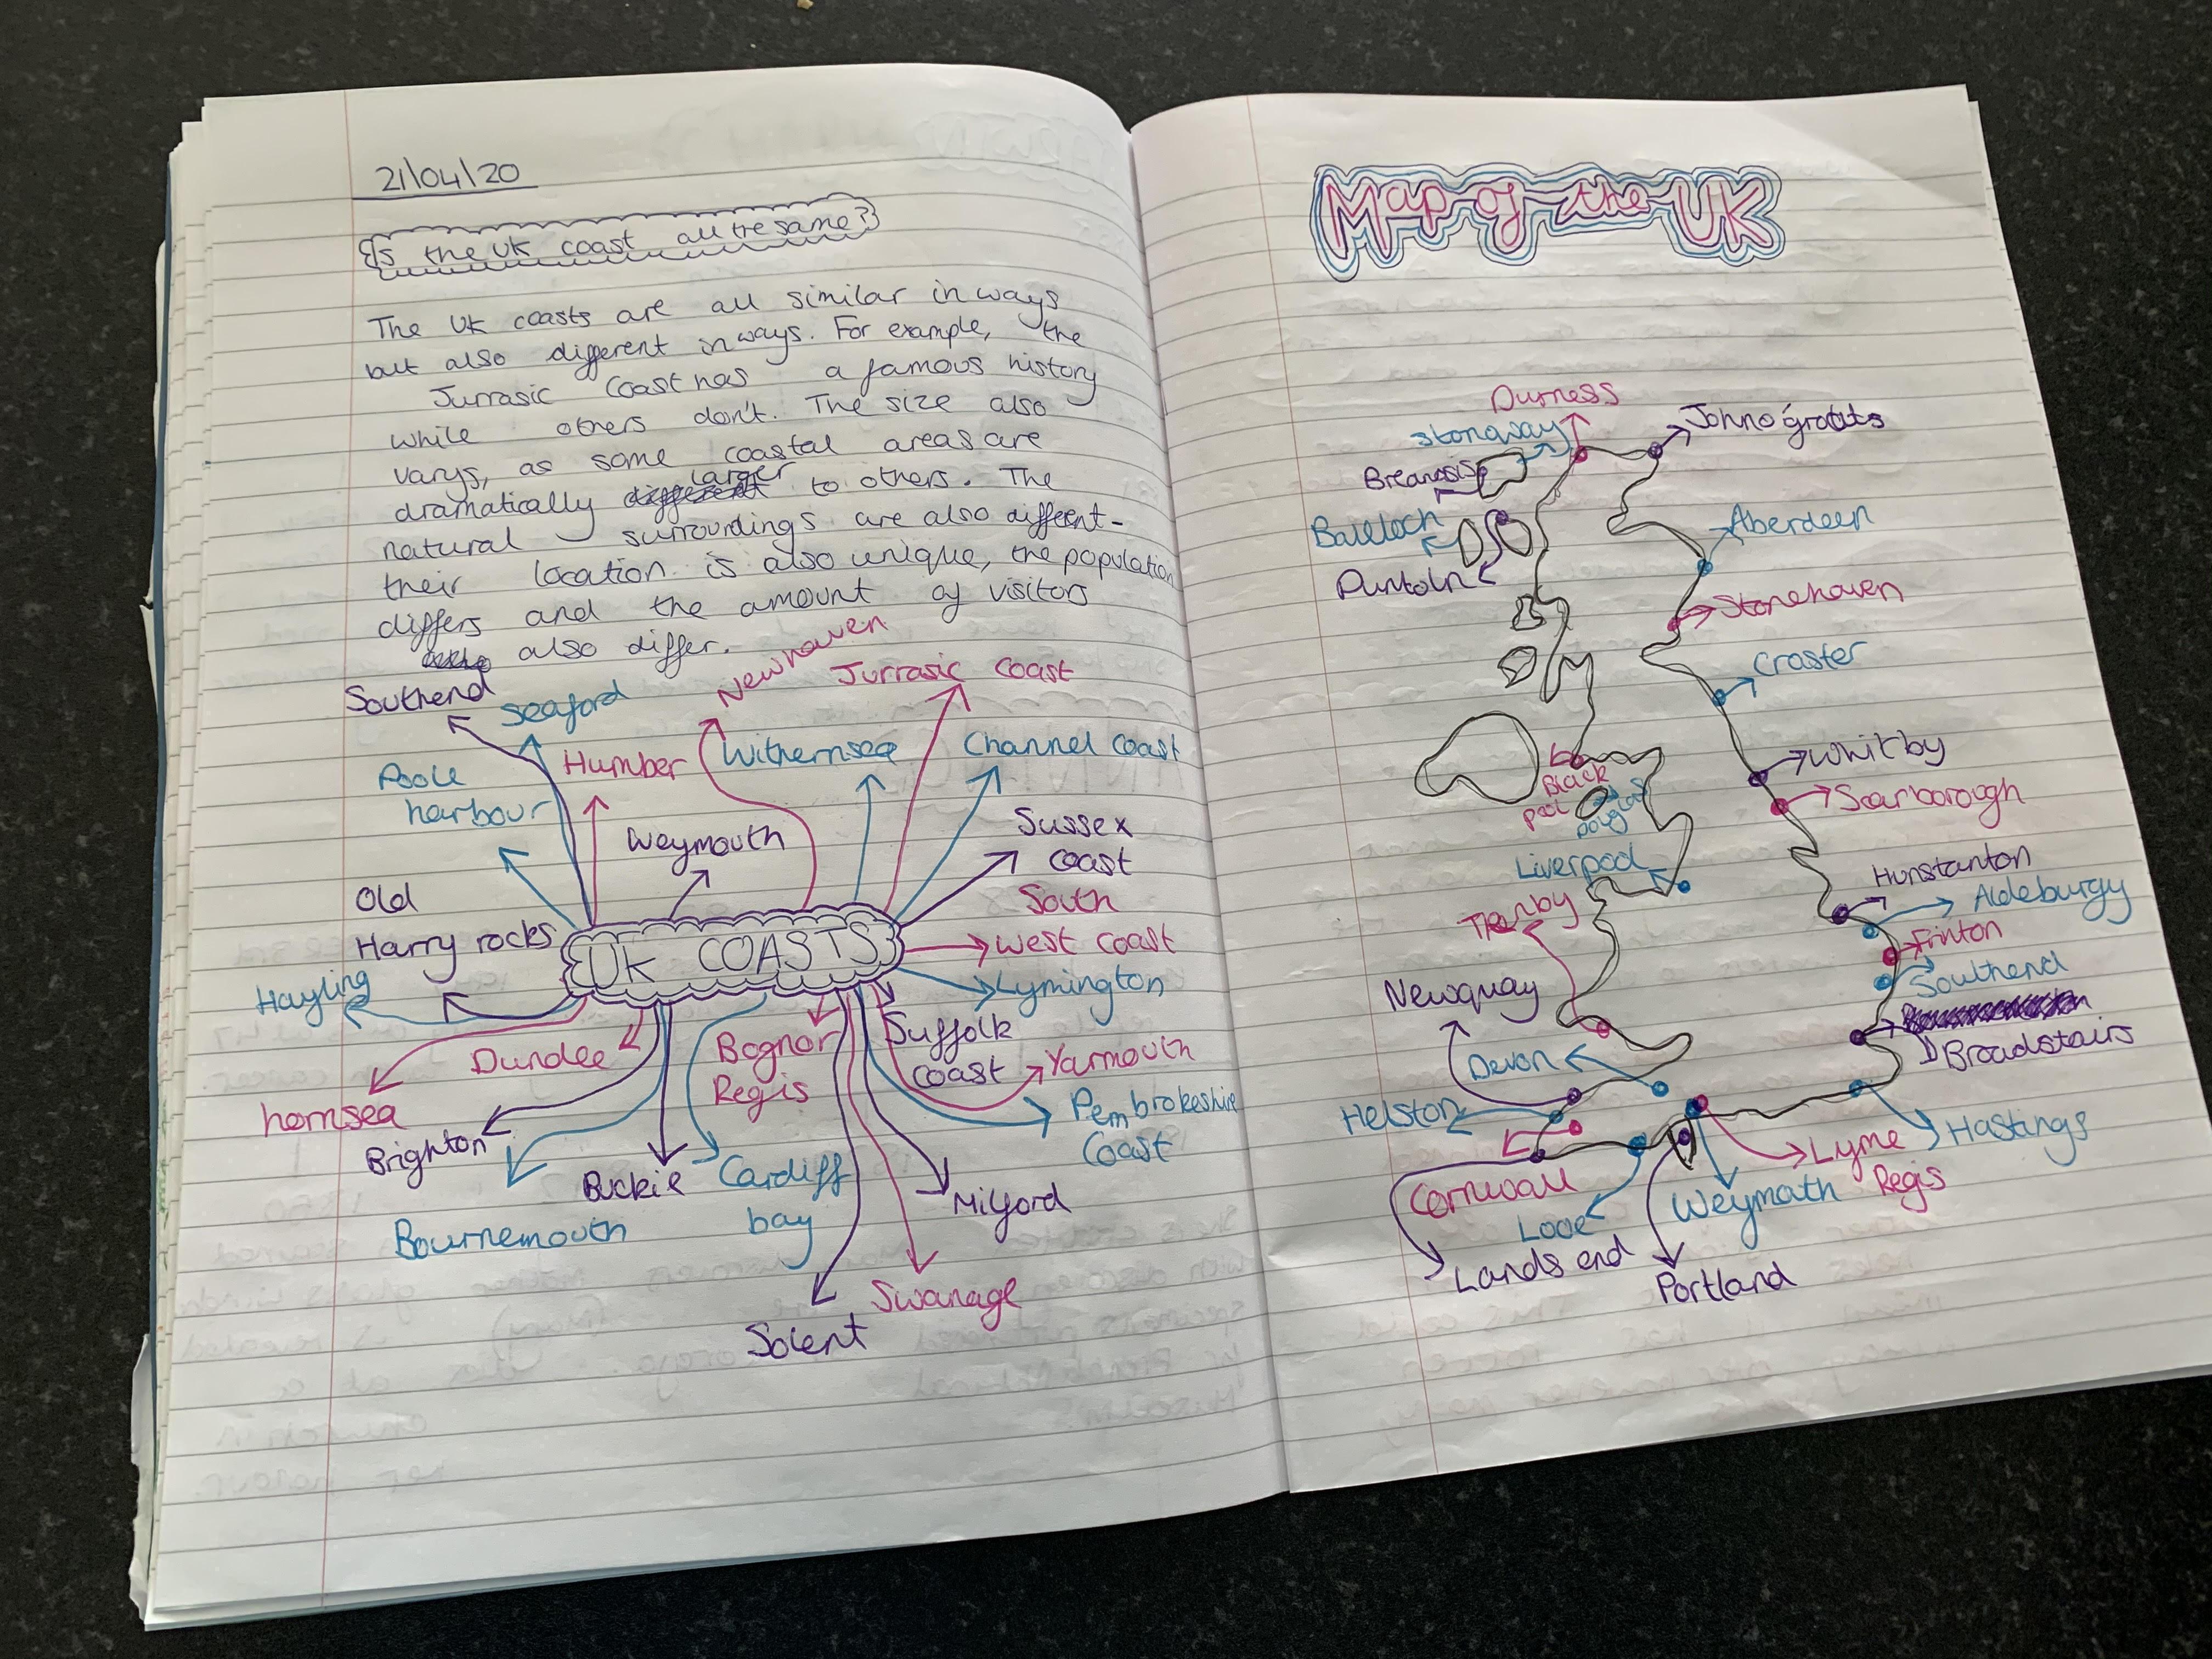 21/04/20
Is the UK coast all the same?
The UK coasts are all similar in ways
but also different in ways. For example, the
Jurrasic Coast has a famous history
while others don't. The size also
varys, as some coastal areas are
dramatically larger to others. The
natural surroundings are also different-
their location is also unique, the population
differs and the amount of visitors
also differ.
Southend
Seaford
Newhaven
Jurrasic coast
Poole
harbour
Humber
Withernsea
Channel coast
Weymouth
Sussex
coast
Old
Harry rocks
South
west coast
UK COASTS
Hayling
Lymington
Dundee
Bognor
Regis
Suffolk
coast
Yarmouth
hornsea
Brighton
Pembrokeshire
Coast
Bournemouth
Buckie
Cardiff
bay
Milford
Swanage
Solent
Map of the UK
Durness
Stonoway
John o'groats
Aberdeen
Stonehaven
Craster
Whitby
Black
pool
Scarborough
Liverpool
Hunstanton
Aldeburgy
Tenby
Frinton
Southend
Newquay
Broadstairs
Devon
Helston
Hastings
Lyme
Regis
Cornwall
Weymouth
Looe
Lands end
Portland